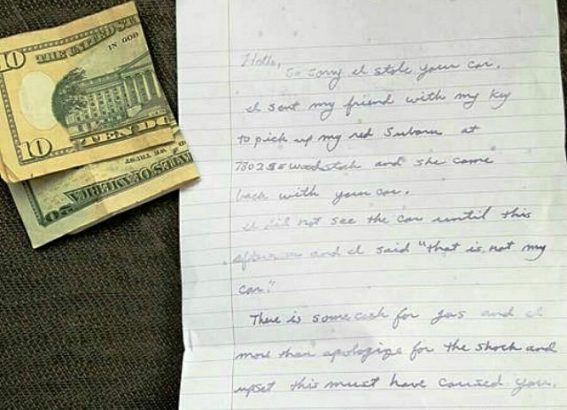 10
THE UNITED ST
IN GOD
10
TEN DO
WE TRUST
TES OF AMERICA
Hello,
So sorry I stole your car.
I sent my friend with my key
to pick up my red Subaru at
7802 SE Woodstock and she came
back with your car.
I did not see the car until this
afternoon and I said "that is not my
car."
There is some cash for gas and I
more than apologize for the shock and
upset this must have caused you.